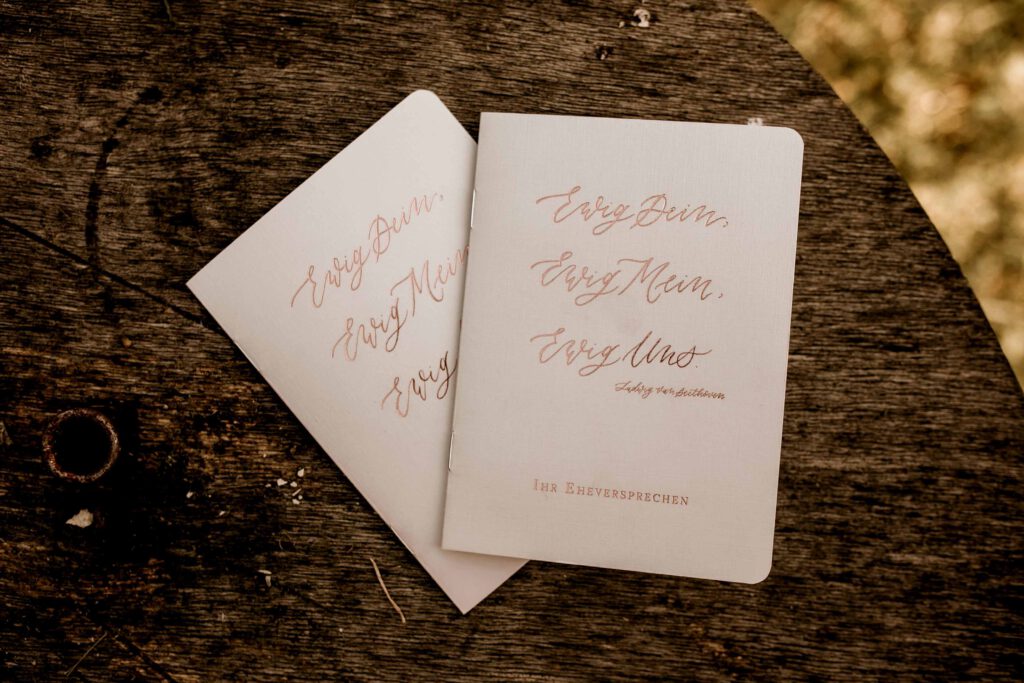 Ewig Dein,
Ewig Mein,
Ewig
Ewig Dein,
Ewig Mein,
Ewig Uns.
Ludwig van Beethoven
Ihr Eheversprechen